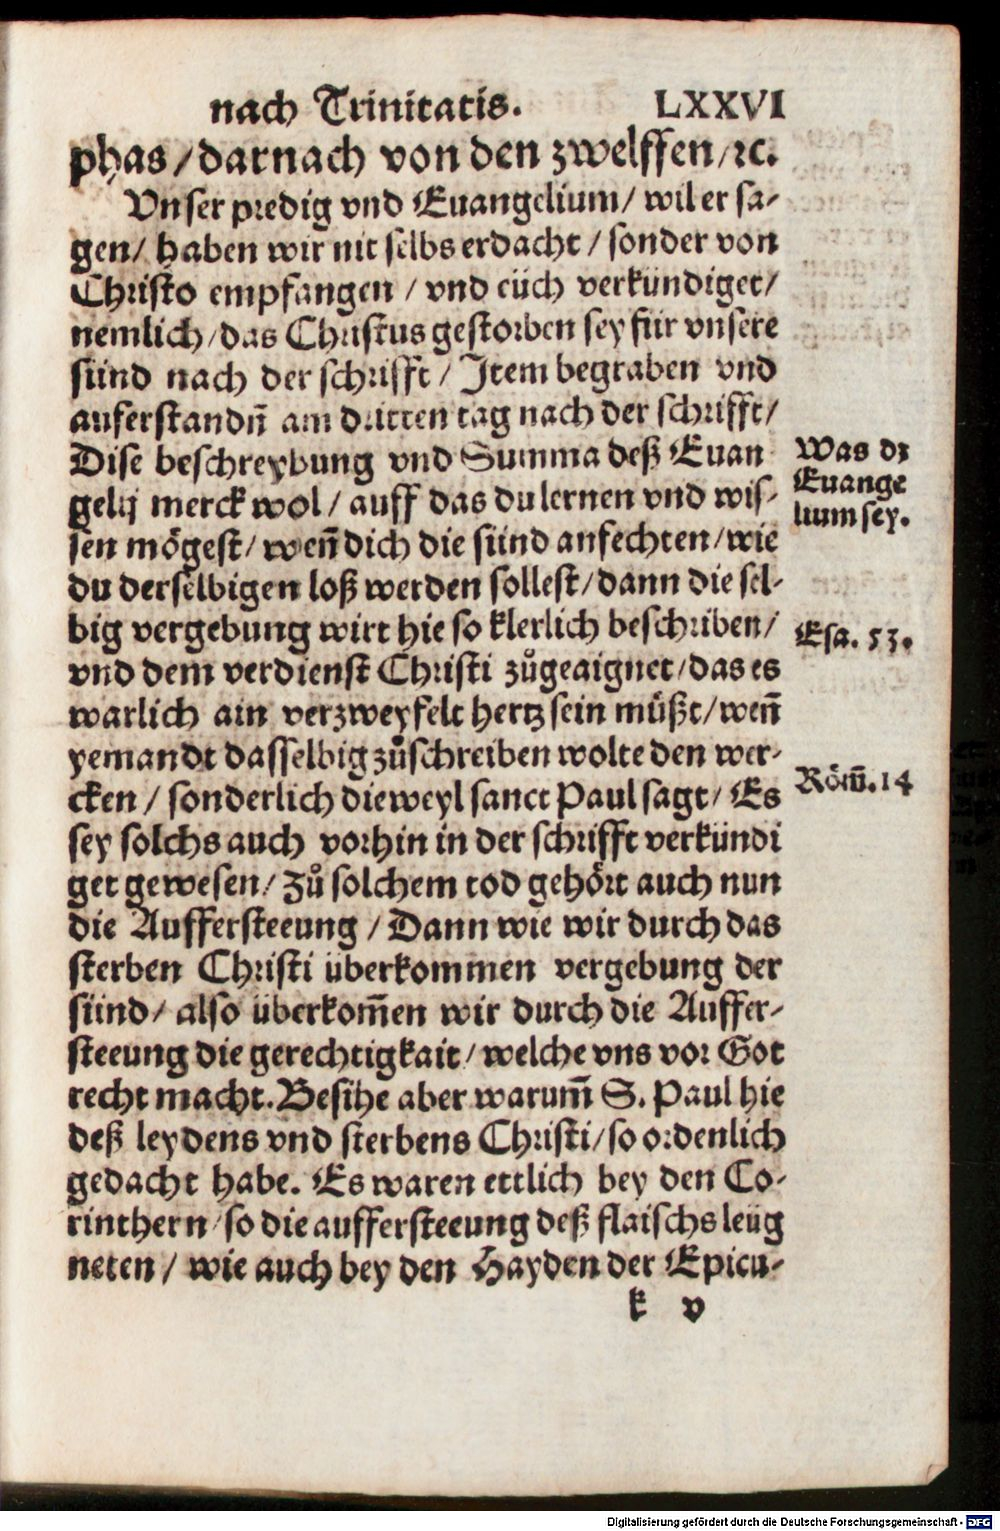 nach Trinitatis. LXXVI
phas / darnach von den zwelffen / ꝛc.
Vnser predig vnd Euangelium / wil er sa-
gen / haben wir nit selbs erdacht / sonder von
Christo empfangen / vnd eüch verkündiget /
nemlich / das Christus gestorben sey für vnsere
sünd nach der schrifft / Item begraben vnd
auferstandn̄ am dritten tag nach der schrifft /
Dise beschreybung vnd Summa deß Euan
gelij merck wol / auff das du lernen vnd wis-
sen mögest / weñ dich die sünd anfechten / wie
du derselbigen loß werden sollest / dann die sel-
big vergebung wirt hie so klerlich beschriben /
vnd dem verdienst Christi zůgeaignet / das es
warlich ain verzweyfelt hertz sein müßt / weñ
yemandt dasselbig zůschreiben wolte den wer-
cken / sonderlich dieweyl sanct Paul sagt / Es
sey solchs auch vorhin in der schrifft verkündi
get gewesen / Zů solchem tod gehört auch nun
die Auffersteeung / Dann wie wir durch das
sterben Christi überkommen vergebung der
sünd / also überkom̄en wir durch die Auffer-
steeung die gerechtigkait / welche vns vor Got
recht macht. Besihe aber warum̄ S. Paul hie
deß leydens vnd sterbens Christi / so ordenlich
gedacht habe. Es waren ettlich bey den Co-
rinthern / so die auffersteeung deß flaischs leüg
neten / wie auch bey den Hayden der Epicu-
k v
Was dz
Euange
lium sey.
Esa. 53.
Röm̄. 14
Digitalisierung gefördert durch die Deutsche Forschungsgemeinschaft - DFG